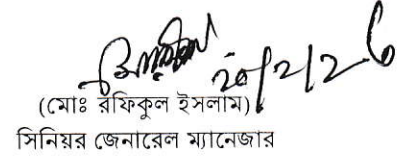 ২০/২/২৬
(মোঃ রফিকুল ইসলাম)
সিনিয়র জেনারেল ম্যানেজার